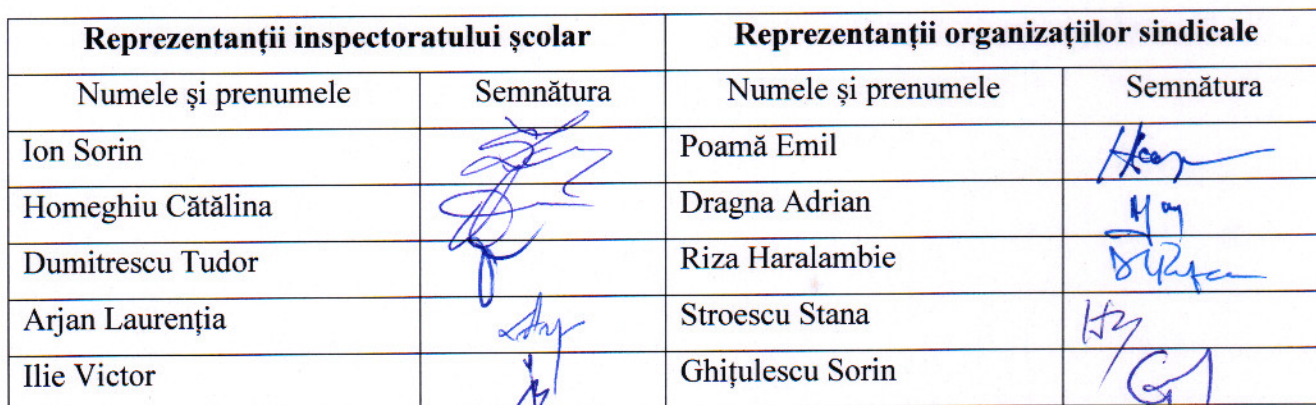 Reprezentanții inspectoratului școlar Reprezentanții organizațiilor sindicale
Numele și prenumele Semnătura Numele și prenumele Semnătura
Ion Sorin Poamă Emil
Homeghiu Cătălina Dragna Adrian
Dumitrescu Tudor Riza Haralambie
Arjan Laurenția Stroescu Stana
Ilie Victor Ghițulescu Sorin